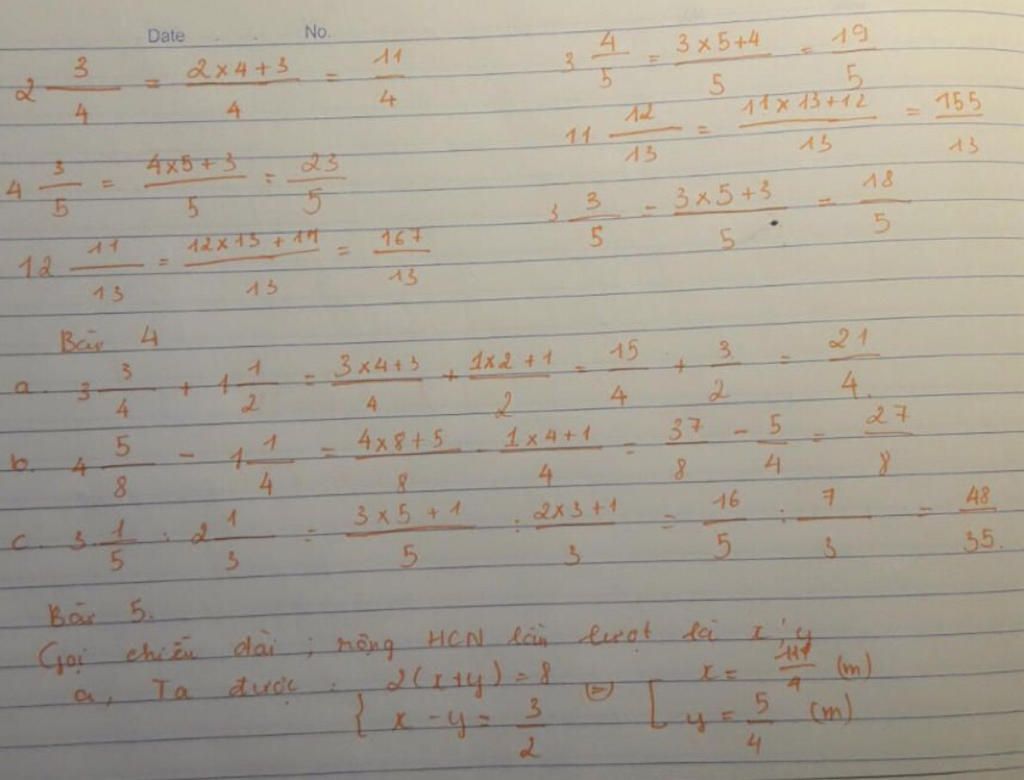 Date No.
2 3/4 = (2×4+3)/4 = 11/4
3 4/5 = (3×5+4)/5 = 19/5
11 12/13 = (11×13+12)/13 = 155/13
4 3/5 = (4×5+3)/5 = 23/5
3 3/5 = (3×5+3)/5 = 18/5
12 11/13 = (12×13+11)/13 = 167/13
Bài 4
a. 3 3/4 + 1 1/2 = (3×4+3)/4 + (1×2+1)/2 = 15/4 + 3/2 = 21/4.
b. 4 5/8 - 1 1/4 = (4×8+5)/8 - (1×4+1)/4 = 37/8 - 5/4 = 27/8
c. 3 1/5 : 2 1/3 = (3×5+1)/5 : (2×3+1)/3 = 16/5 : 7/3 = 48/35.
Bài 5.
Gọi chiều dài ; rộng HCN lần lượt là x ; y
a, Ta được : { 2(x+y) = 8 (=) [ x = 11/4 (m)
x - y = 3/2 y = 5/4 (m)